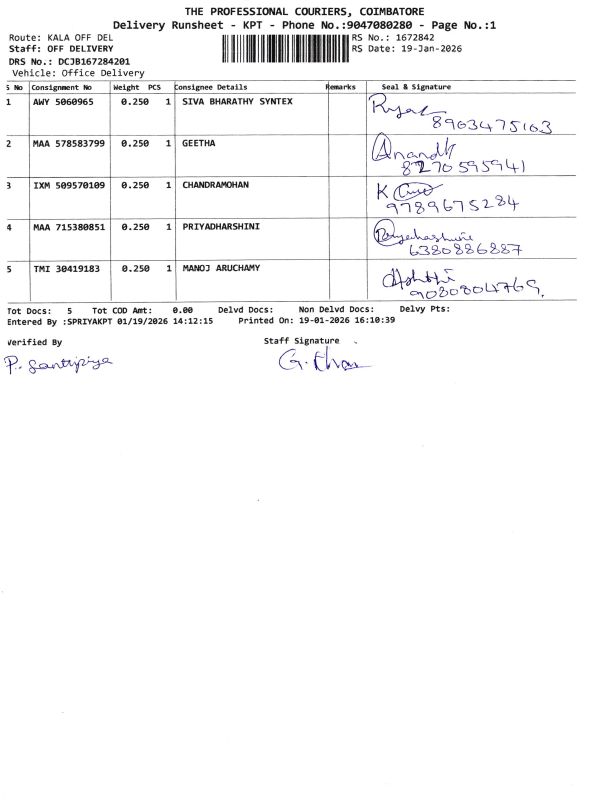 THE PROFESSIONAL COURIERS, COIMBATORE
Delivery Runsheet - KPT - Phone No.:9047080280 - Page No.:1
Route: KALA OFF DEL RS No.: 1672842
Staff: OFF DELIVERY RS Date: 19-Jan-2026
DRS No.: DCJB167284201
Vehicle: Office Delivery
S No Consignment No Weight PCS Consignee Details Remarks Seal & Signature
1 AWY 5060965 0.250 1 SIVA BHARATHY SYNTEX
8903475163
2 MAA 578583799 0.250 1 GEETHA Anandh
8270595941
3 IXM 509570109 0.250 1 CHANDRAMOHAN K
9789675284
4 MAA 715380851 0.250 1 PRIYADHARSHINI
6380886887
5 TMI 30419183 0.250 1 MANOJ ARUCHAMY
9080804769.
Tot Docs: 5 Tot COD Amt: 0.00 Delvd Docs: Non Delvd Docs: Delvy Pts:
Entered By :SPRIYAKPT 01/19/2026 14:12:15 Printed On: 19-01-2026 16:10:39
Verified By Staff Signature
P. G.